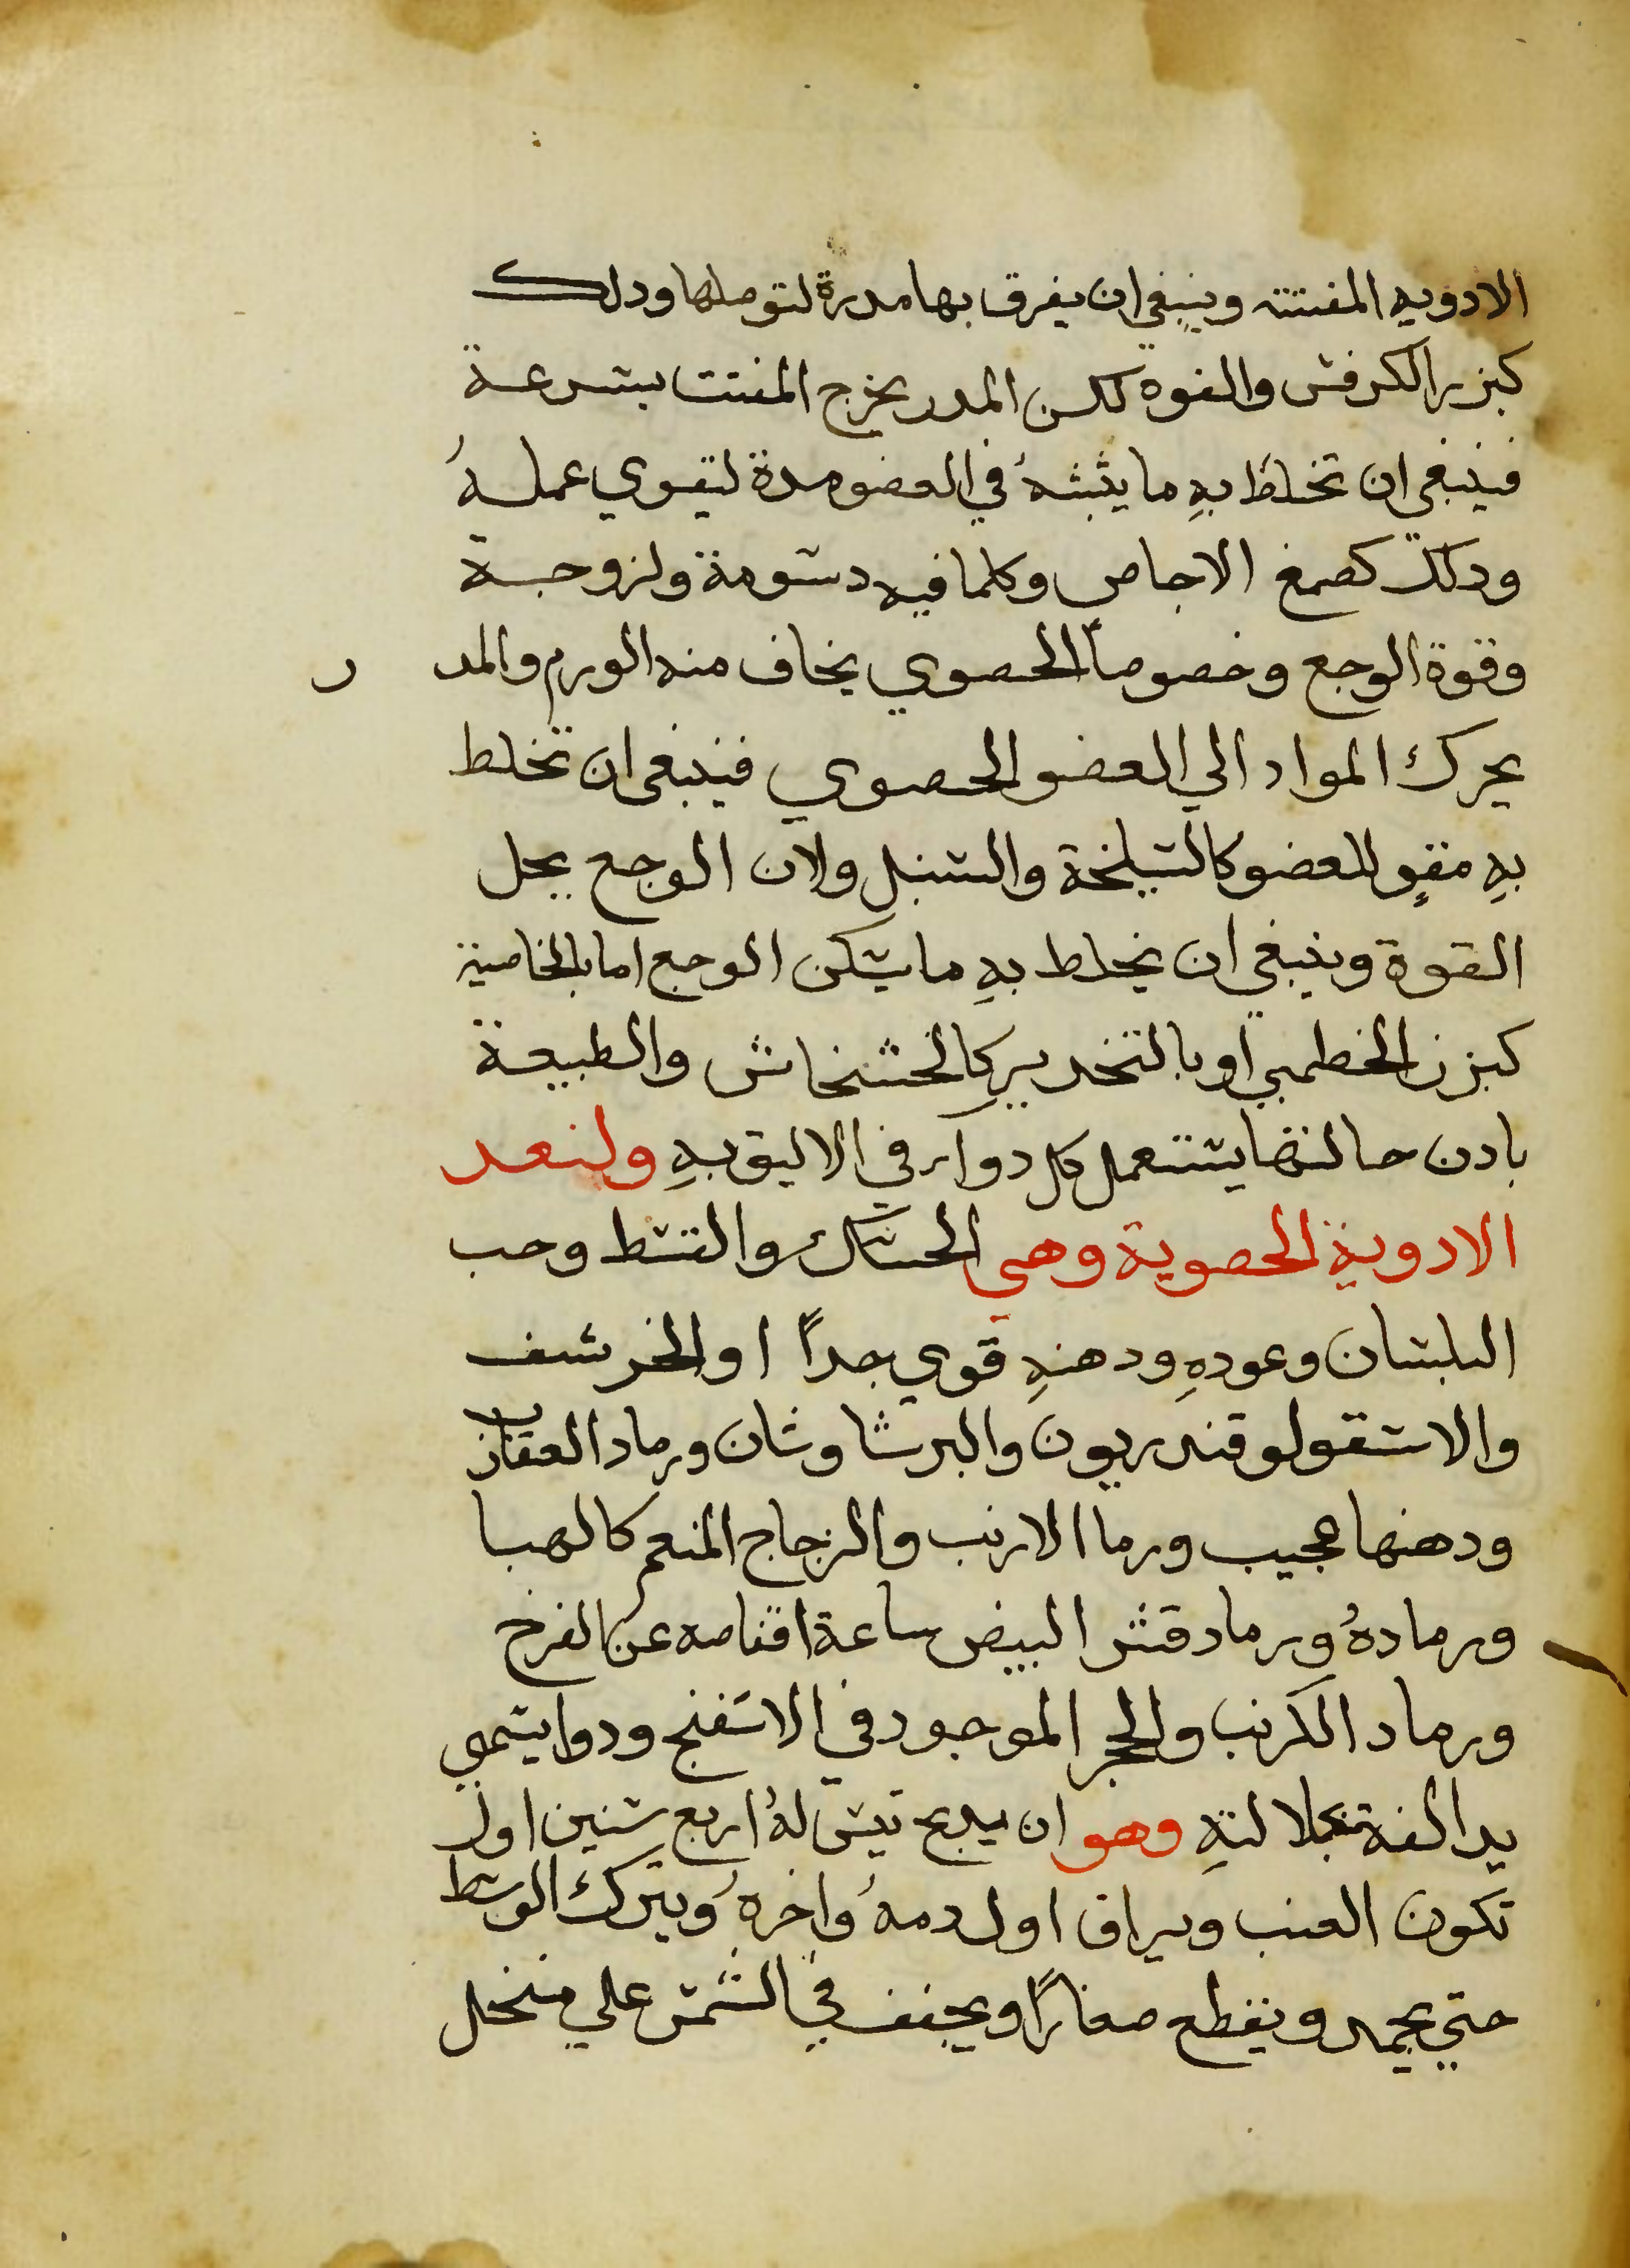 الادويه المفتته وينبغي ان يفرق بها مدرة لتوصلها ودلك
كبزر الكرفس والفوة لكن المدر يخرج المفتت بسرعة
فينبغي ان تخلط بهِ ما يثبتهُ في العضو مدة ليقوي عملهُ
ودلك كصمغ الاجاص وكلما فيه دسومة ولزوجة
وقوة الوجع وخصوصاً الحصوي يخاف منه الورم والمد ر
يحرك المواد الي العضو الحصوي فينبغي ان تخلط
بهِ مقوٍ للعضو كالسليخة والسنبل ولان الوجع يحل
القوة وينبغي ان يخلط بهِ ما يسكن الوجع اما بالخاصية
كبزر الخطمي او بالتخدير كالخشخاش والطبيعة
بادن خالقها يستعمل كل دوآ في الاليق بهِ ولنعد
الادوية الحصوية وهي الحسك والقسط وحب
البلسان وعودهِ ودهنهِ قوي جداً او الخرشف
والاسقولوقندريون والبرشاوشان ورماد العقارب
ودهنها عجيب ورما الارنب والزجاج المنعم كالهبا
ورمادهُ ورماد قشر البيض ساعة انفقاصه عن الفرخ
ورماد الكرنب والحجر الموجود في الاسفنج ودوا يسمي
يد الله لجلالتهِ وهو ان يدبح تيس لهُ اربع سنين اول
تكون العنب ويراق اول دمهُ واخرهُ ويترك الوسط
حتي يجمد ويقطع صغارًا ويجفف في الشمس علي منخل